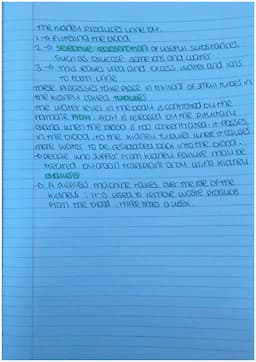 The kidney produces urine by:
1 → Filtering the blood
2 → selective reabsorption of useful substances,
such as glucose some ions and water.
3 → this leaves urea and excess water and ions
to form urine
these processes take place in millions of small tubes in
the kidney called tubules.
the water level in the body is controlled by the
hormone ADH. ADH is released by the pituitary
gland when the blood is too concentrated, it passes,
in the blood, to the kidney tubules where it causes
more water to be reabsorbed back into the blood.
people who suffer from kidney failure may be
treated by organ transplant or by using kidney
dialysis
A dialysis machine takes over the role of the
kidneys ; it is used to remove waste products
from the blood, three times a week.